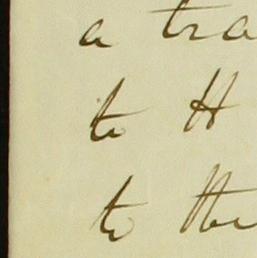 a tra
to H
to the